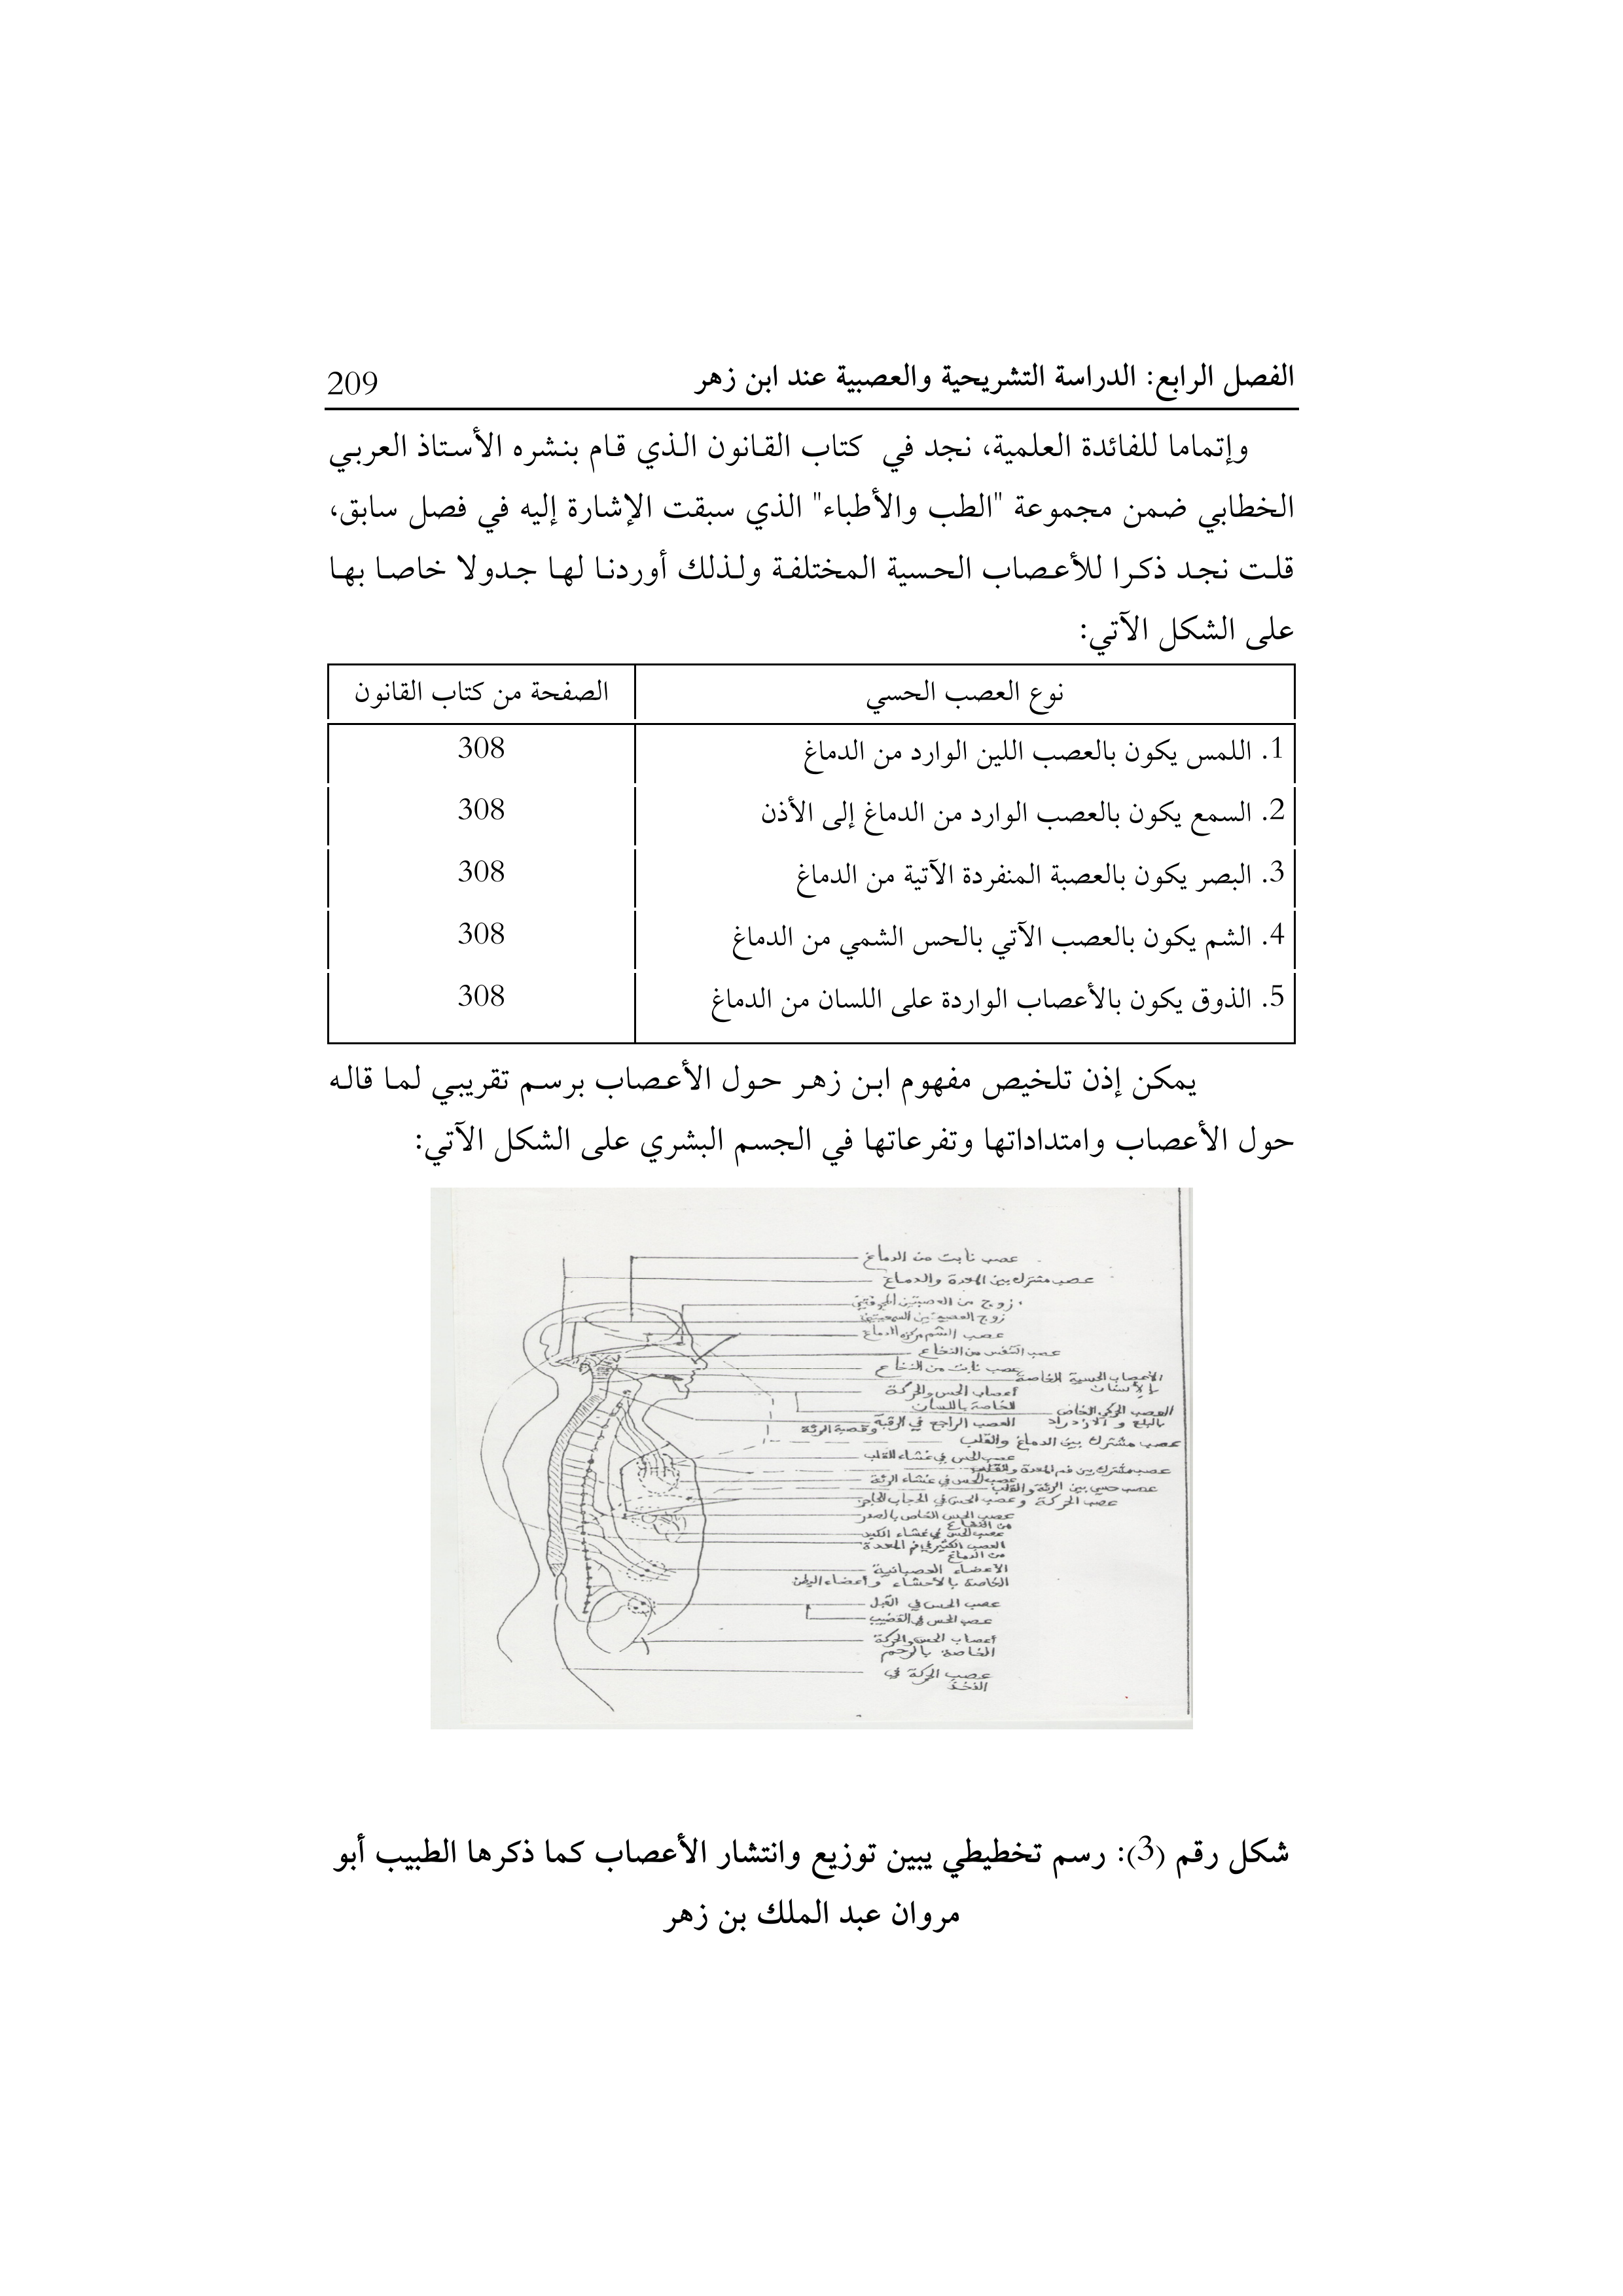 الفصل الرابع: الدراسة التشريحية والعصبية عند ابن زهر 209
وإتماما للفائدة العلمية، نجد في كتاب القانون الذي قام بنشره الأستاذ العربي
الخطابي ضمن مجموعة "الطب والأطباء" الذي سبقت الإشارة إليه في فصل سابق،
قلت نجد ذكرا للأعصاب الحسية المختلفة ولذلك أوردنا لها جدولا خاصا بها
على الشكل الآتي:
نوع العصب الحسي الصفحة من كتاب القانون
1. اللمس يكون بالعصب اللين الوارد من الدماغ 308
2. السمع يكون بالعصب الوارد من الدماغ إلى الأذن 308
3. البصر يكون بالعصبة المنفردة الآتية من الدماغ 308
4. الشم يكون بالعصب الآتي بالحس الشمي من الدماغ 308
5. الذوق يكون بالأعصاب الواردة على اللسان من الدماغ 308
يمكن إذن تلخيص مفهوم ابن زهر حول الأعصاب برسم تقريبي لما قاله
حول الأعصاب وامتداداتها وتفرعاتها في الجسم البشري على الشكل الآتي:
عصب نابت من الدماغ
عصب مشترك بين المعدة والدماغ
زوج من العصبتين المجوفتين
زوج العصبتين السمعيتين
عصب الشم مركزه الدماغ
عصب التنفس من النخاع
عصب نابت من النخاع
الأعصاب الحسية الخاصة
بالأسنان
أعصاب الحس والحركة
الخاصة باللسان
العصب الحركي الخاص
بالبلع و الازدراد
العصب الراجع في الرقبة وقصبة الرئة
عصب مشترك بين الدماغ والقلب
عصب الحس في غشاء القلب
عصب مشترك بين فم المعدة والقلب
عصب الحس في غشاء الرئة
عصب حسي بين الرئة والقلب
عصب الحركة وعصب الحس في الحجاب الحاجز
عصب الحس الخاص بالصدر
من النخاع
عصب الحس في غشاء الكبد
العصب الكثير في فم المعدة
من الدماغ
الأعضاء العصبانية
الخاصة بالأحشاء وأعضاء البطن
عصب الحس في القبل
عصب الحس في القضيب
أعصاب الحس والحركة
الخاصة بالرحم
عصب الحركة في
الفخذ
شكل رقم (3): رسم تخطيطي يبين توزيع وانتشار الأعصاب كما ذكرها الطبيب أبو
مروان عبد الملك بن زهر